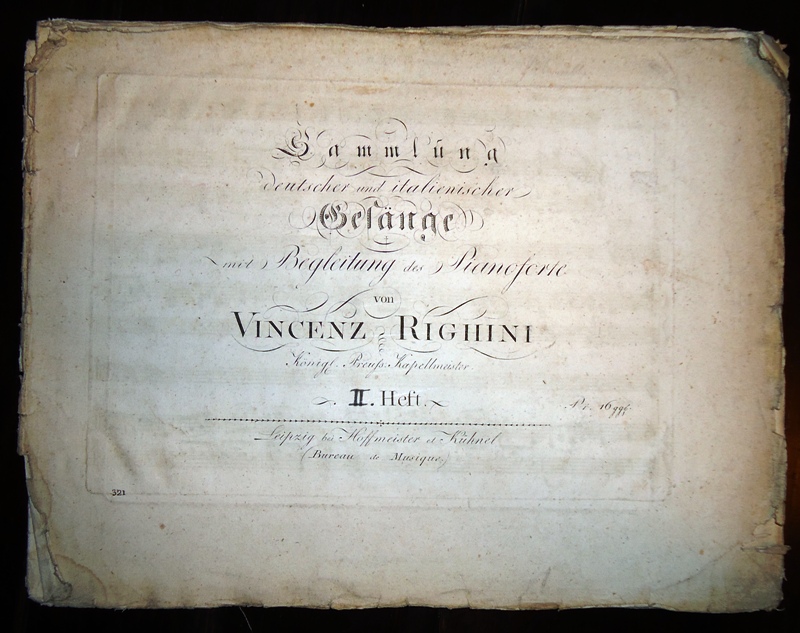 Sammlūng
deutscher und italienischer
Gesänge
mit Begleitung des Pianoforte
von
VINCENZ RIGHINI
Königl. Preuſs. Kapellmeister.
II. Heft.
Pr. 16 ggr.
Leipzig bei Hoffmeister et Kühnel
(Bureau de Musique.)
321